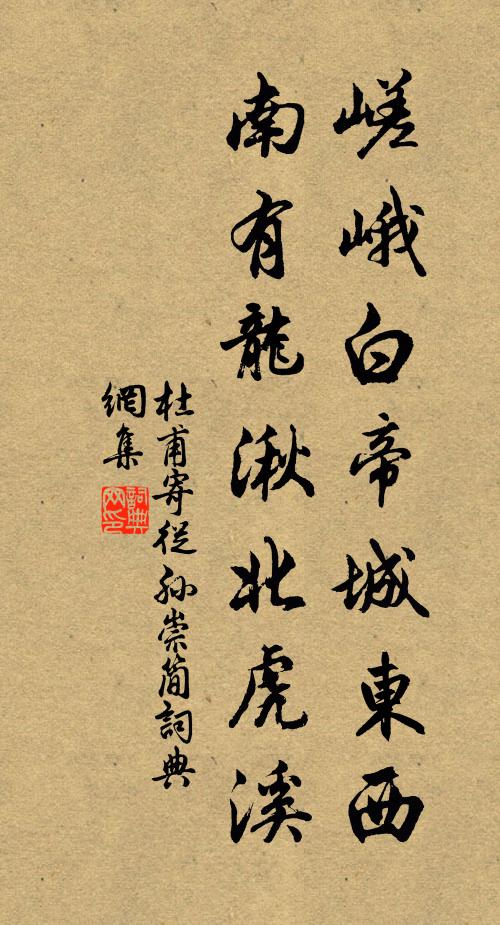 嵯峨白帝城東西
南有龍湫北虎溪
杜甫寄從孙崇簡詞典
網集
詞典
网印